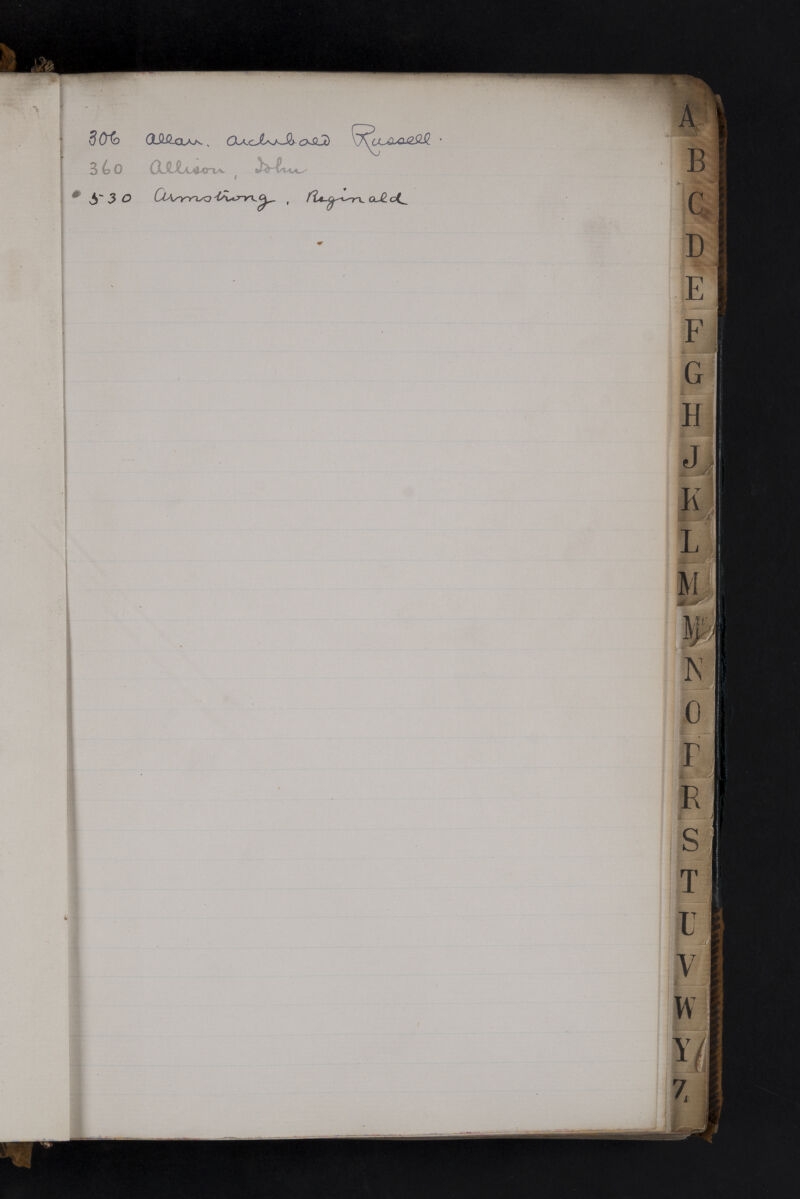 306 Allan. Archibald Russell.
360 Allison, John
530 Armstrong, Reginald
A
B
C
D
E
F
G
H
J
K
L
M
Mc
N
O
P
R
S
T
U
V
W
Y
Z